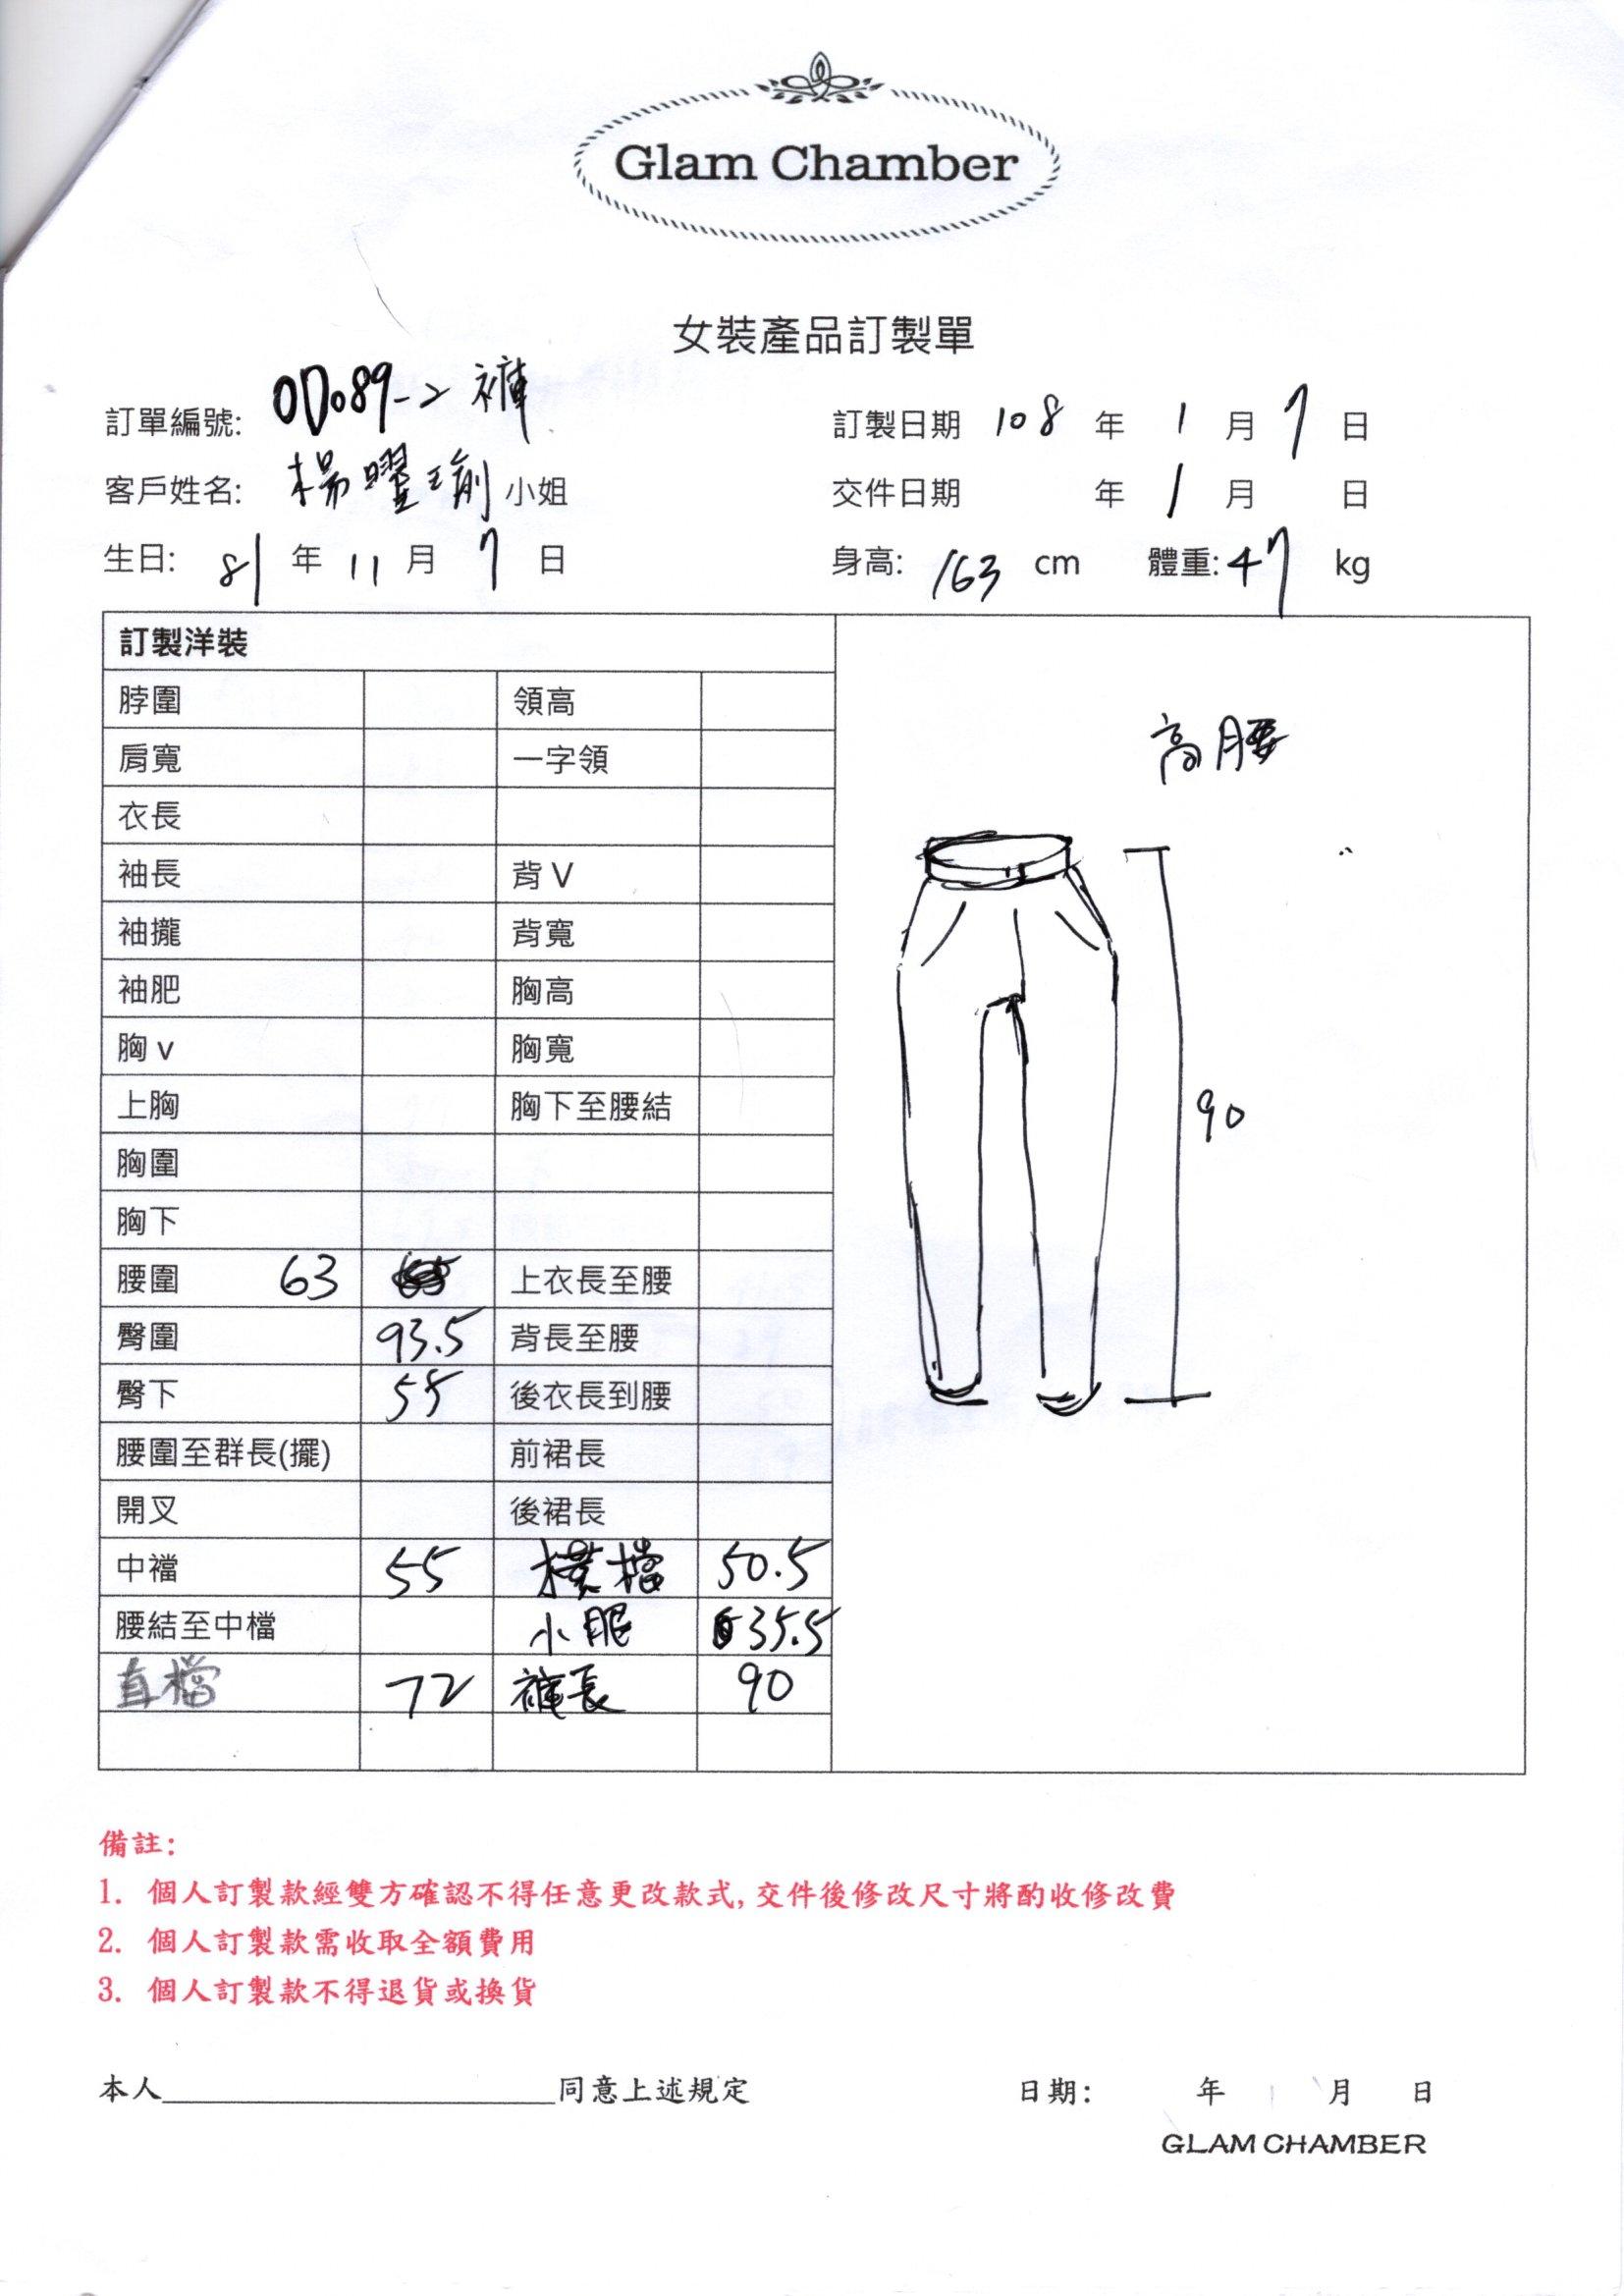 Glam Chamber
女裝產品訂製單
訂單編號: OD089-2 褲
訂製日期 108 年 1 月 7 日
客戶姓名: 楊曜瑜 小姐
交件日期 年 1 月 日
生日: 81 年 11 月 7 日
身高: 163 cm 體重: 47 kg
訂製洋裝
脖圍 領高
肩寬 一字領
衣長
袖長 背 V
袖攏 背寬
袖肥 胸高
胸 v 胸寬
上胸 胸下至腰結
胸圍
胸下
腰圍 63 上衣長至腰
臀圍 93.5 背長至腰
臀下 55 後衣長到腰
腰圍至群長(擺) 前裙長
開叉 後裙長
中襠 55 橫檔 50.5
腰結至中檔 小腿 35.5
直檔 72 褲長 90
高腰
90
備註:
1. 個人訂製款經雙方確認不得任意更改款式, 交件後修改尺寸將酌收修改費
2. 個人訂製款需收取全額費用
3. 個人訂製款不得退貨或換貨
本人____________________同意上述規定
日期: 年 月 日
GLAM CHAMBER